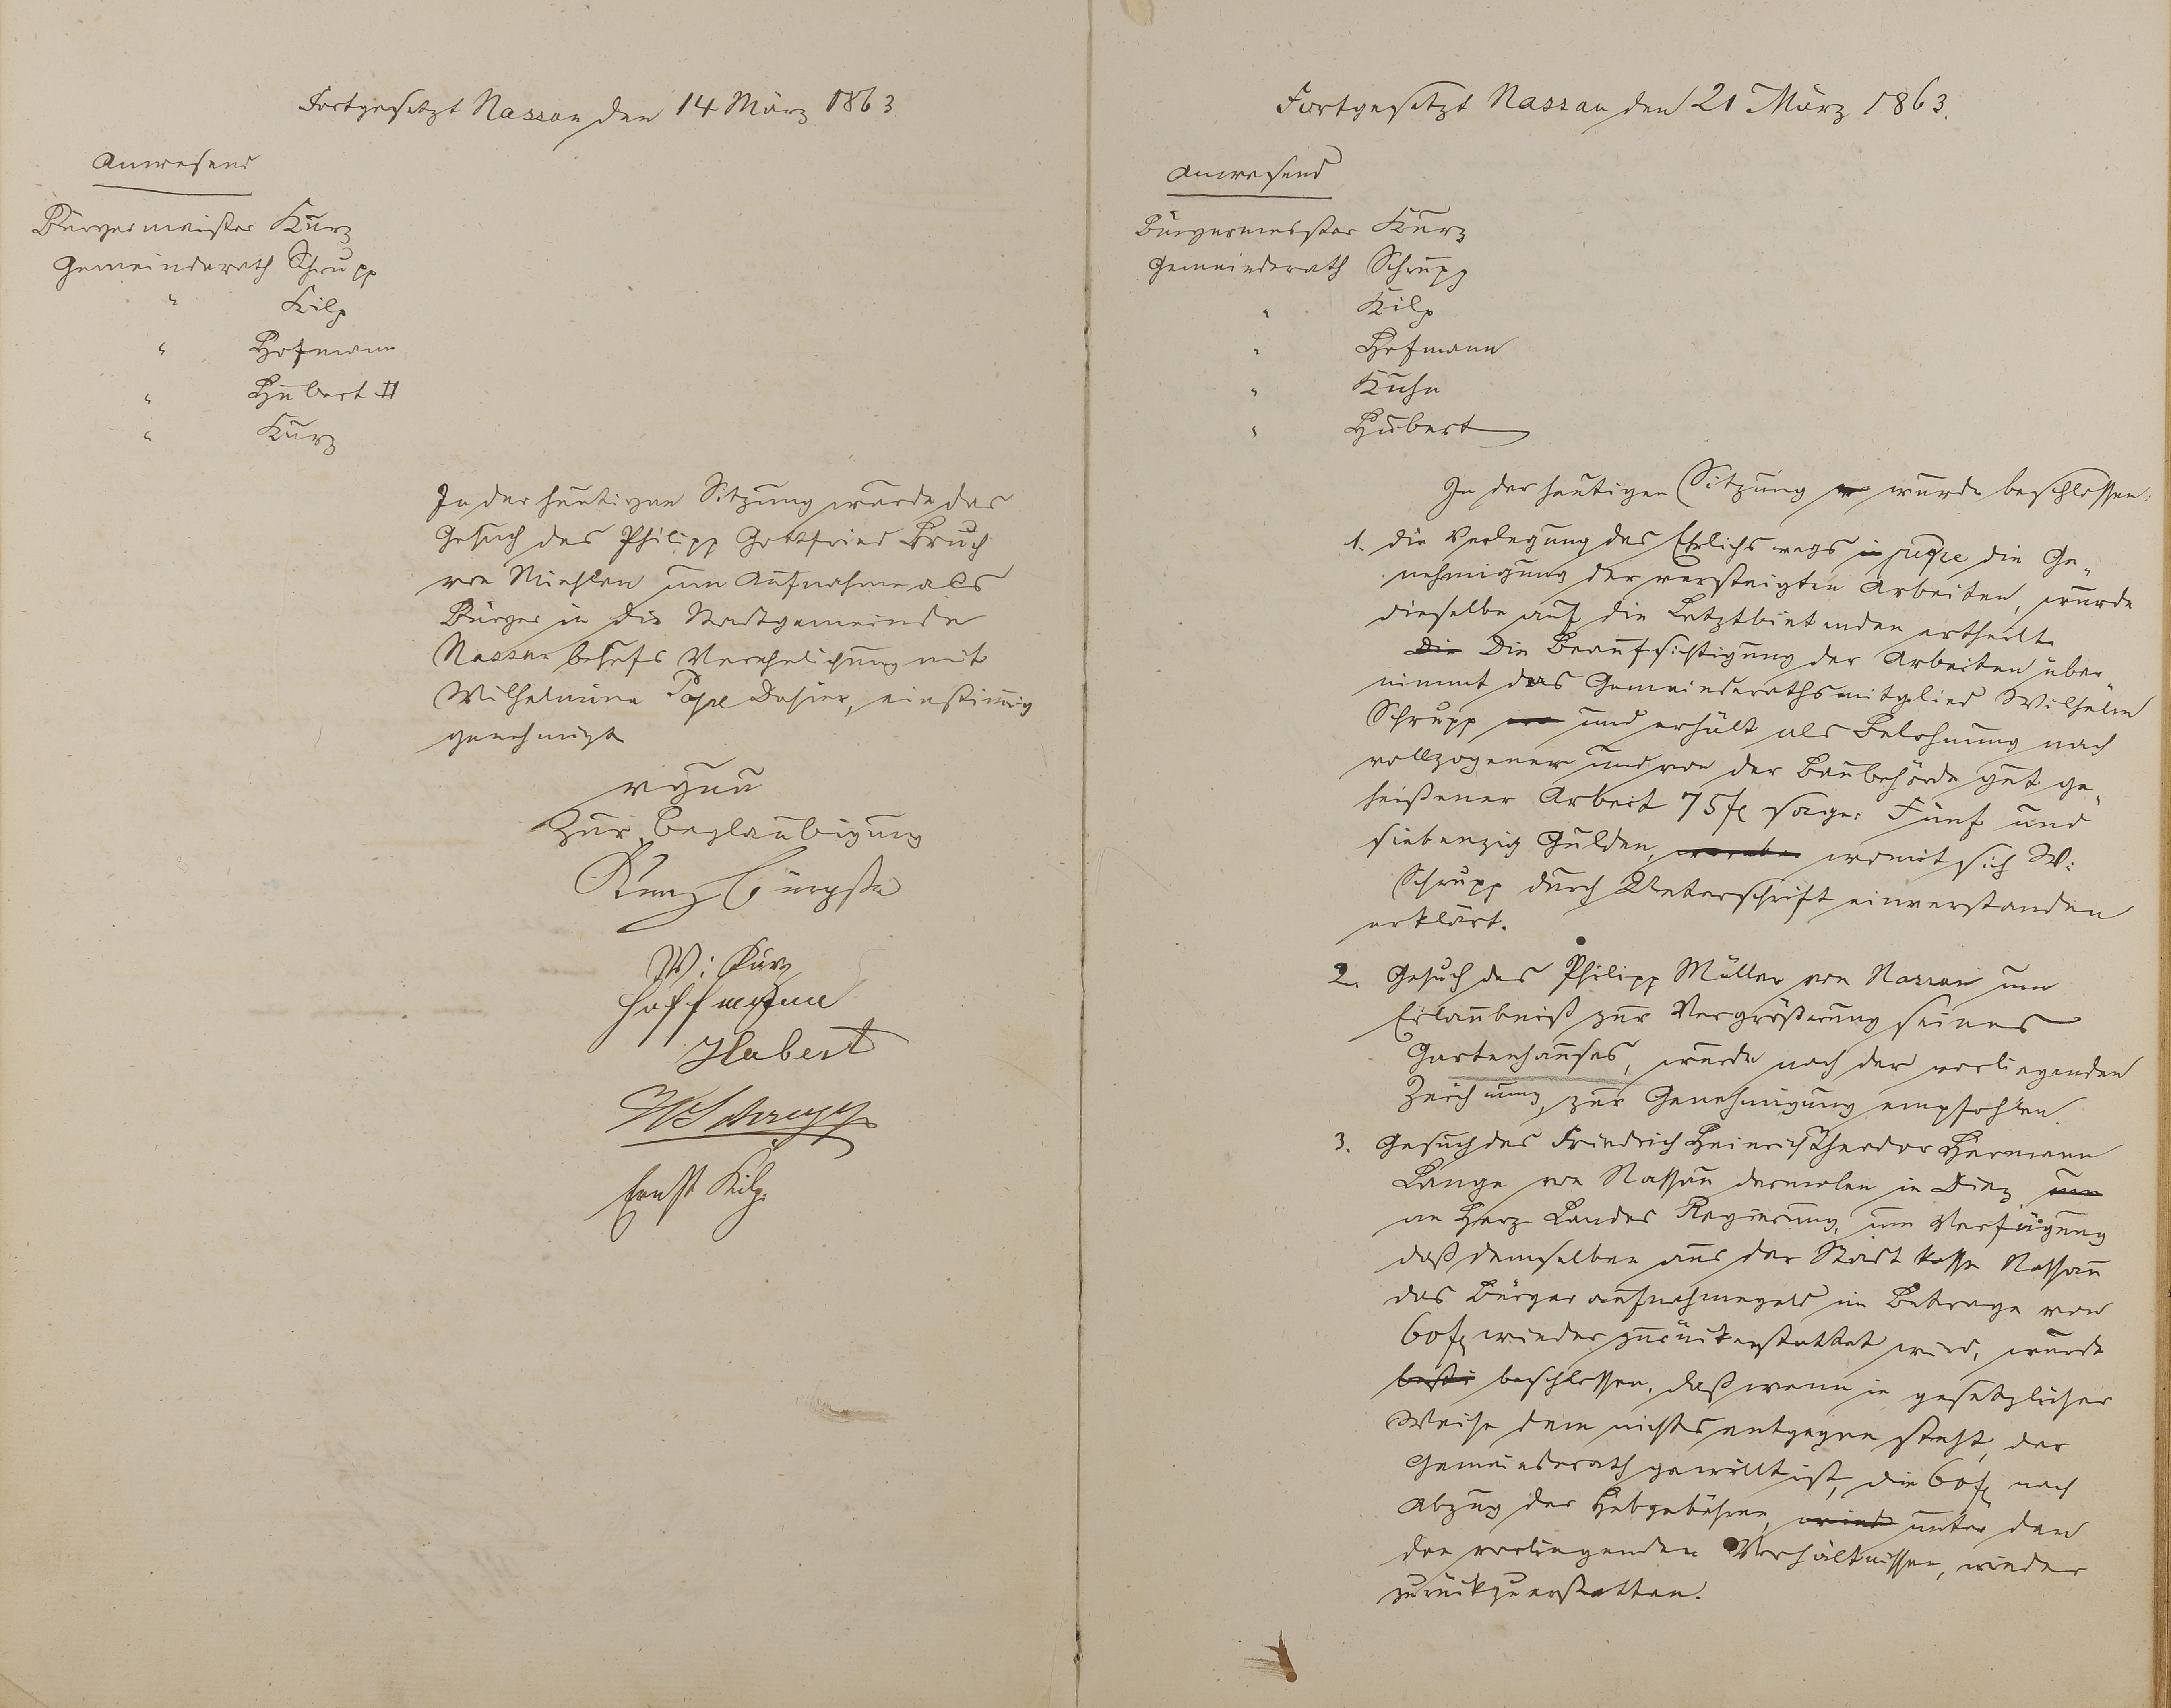 Fortgesetzt Nassau den 14 März 1863.
Anwesend
Bürgermeister Kurz
Gemeinderath Schrupp
" Kilp
" Hofmann
" Hubert II
" Kurz
In der heutigen Sitzung wurde das
Gesuch des Philipp Gottfried Bruch
von Miehlen um Aufnahme als
Bürger in die Stadtgemeinde
Nassau behufs Verehelichung mit
Wilhelmine Pape dahier, einstimig
genehmigt
Zur Beglaubigung
Kurz Bürgstr
W: Kurz
Hoffmann
Hubert
W Schrupp
Ernst Kilp.
Fortgesetzt Nassau den 21 März 1863.
Anwesend
Bürgermeister Kurz
Gemeinderath Schrupp
" Kilp
" Hofmann
" Kuhn
" Hubert
In der heutigen Sitzung wurde beschlossen:
1. die Verlegung des Ehrlichs wegs die Ge„
nehmigung der versteigten Arbeiten, wurde
dieselbe auf die Letztbietenden ertheilt
Die Die Beaufsichtigung der Arbeiten über„
nimmt das Gemeinderathsmitglied Wilhelm
Schrupp und erhält als Belohnung nach
vollzogener und von der Baubehörde gut ge„
heißener Arbeit 75 fl sage: Fünf und
siebenzig Gulden, womit sich W:
Schrupp durch Unterschrift einverstanden
erklärt.
2. Gesuch des Philipp Müller von Nassau um
Erlaubniß zur Vergrößerung seines
Gartenhauses, wurde nach der vorliegenden
Zeichnung, zur Genehmigung empfohlen.
3. Gesuch des Friedrich Heinrich Theodor Hermann
Lange von Nassau dermalen in Diez um
an Herz. Landes Regierung, um Verfügung
daß demselben aus der Stadt kasse Nassau
das Bürger aufnahmegeld im Betrage von
60 fl wieder zurückerstattet wird, wurde
beschlossen, daß wenn in gesetzlicher
Weise dem nichts entgegen steht, der
Gemeinderath gewillt ist, die 60 fl nach
Abzug der Hebgebühren, unter den
den vorliegenden Verhältnissen, wieder
zurückzuerstatten.